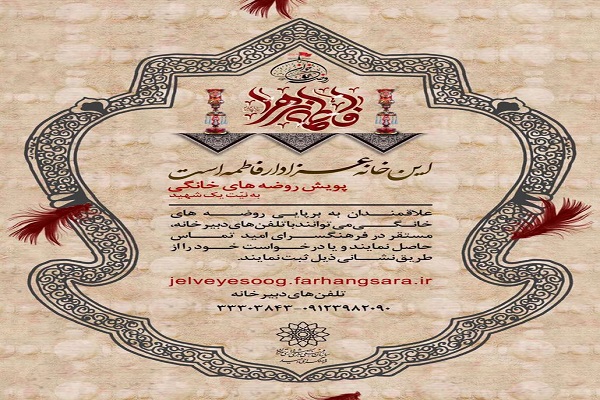 فاطمة الزهرا
این خانه عزادار فاطمه است
پویش روضه های خانگی
به نیّت یک شهید
علاقمندان به برپایی روضه های
خانگی می توانند با تلفن های دبیرخانه،
مستقر در فرهنگسرای امید تماس
حاصل نمایند و یا درخواست خود را از
طریق نشانی ذیل ثبت نمایند.
jelveyesoog.farhangsara.ir
تلفن های دبیرخانه
۳۳۳۰۳۸۴۳-۰۹۱۲۳۹۸۲۰۹۰